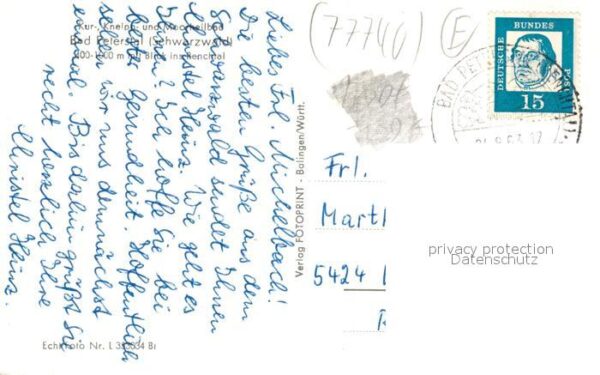 Kur-, Kneipp- und Moorheilbad
Bad Peterstal (Schwarzwald)
400-1000 m mit Blick ins Renchtal
Liebes Frl. Michelbach!
Die besten Grüße aus dem
Schwarzwald sendet Ihnen
Christel Heinz. Wie geht es
Ihnen? Ich hoffe Sie bei
bester Gesundheit. Hoffentlich
sehen wir uns demnächst
einmal. Bis dahin grüßt Sie
recht herzlich Ihre
Christel Heinz.
Echt Foto Nr. L
Verlag FOTOPRINT - Balingen/Württ.
(77740)
(E)
DEUTSCHE
BUNDES
POST
15
BAD PETERSTAL (RENCHTAL)
Frl.
Marth
5424
privacy protection
Datenschutz